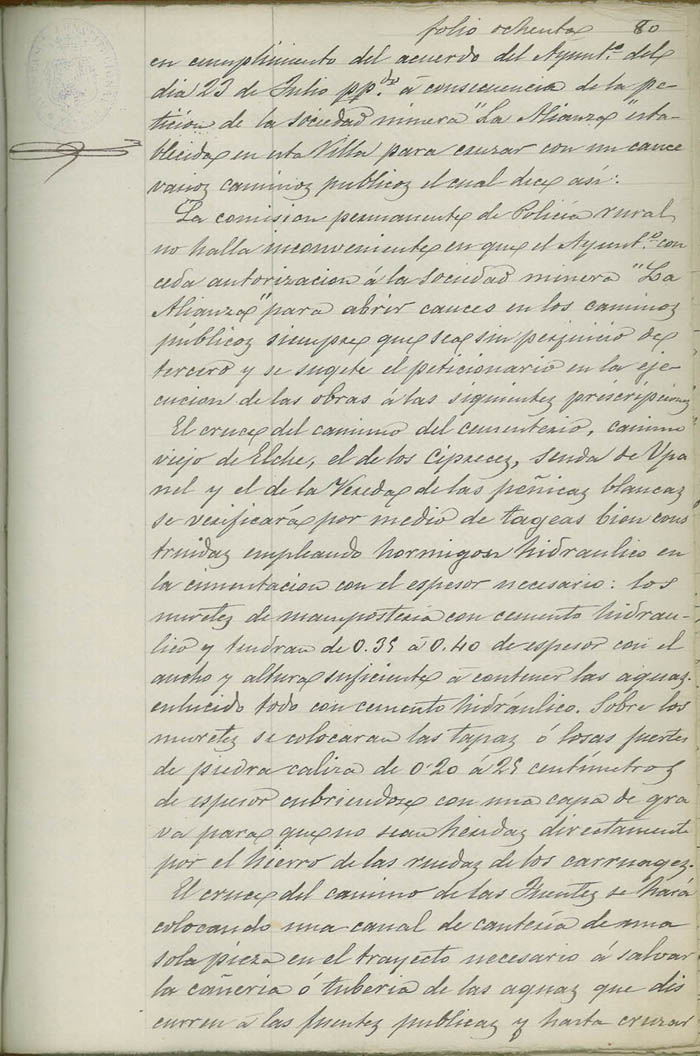 folio ochenta 80
en cumplimiento del acuerdo del Ayunt.º del
dia 23 de Julio pp.do á consecuencia de la pe-
ticion de la sociedad minera "La Alianza" esta-
blecida en esta Villa para cruzar con un cauce
varios caminos publicos el cual dice asi:
La comision permanente de Policía rural
no halla inconveniente en que el Ayunt.º con
ceda autorizacion á la sociedad minera "La
Alianza" para abrir cauces en los caminos
públicos siempre que sea sin perjuicio de
tercero y se sugete el peticionario en la eje-
cucion de las obras á las siguientes prescripciones
El cruce del camino del cementerio, camino
viejo de Elche, el de los Cipreces, senda de Upa
nel y el de la Vereda de las peñicas blancas
se verificará por medio de tageas bien cons
truidas empleando hormigon hidraulico en
la cimentacion con el espesor necesario: los
muretes de mamposteria con cemento hidrau-
lico y tendran de 0.35 á 0.40 de espesor con el
ancho y altura suficiente á contener las aguas.
enlucido todo con cemento hidráulico. Sobre los
muretes se colocaran las tapas ó losas fuertes
de piedra caliza de 0'20 á 25 centímetros
de espesor cubriendose con una capa de gra
va para que no sean heridas directamente
por el hierro de las ruedas de los carruages.
El cruce del camino de las Fuentes se hará
colocando una canal de cantería de una
sola pieza en el trayecto necesario á salvar
la cañeria ó tuberia de las aguas que dis
curren á las fuentes publicas y hasta cruzar